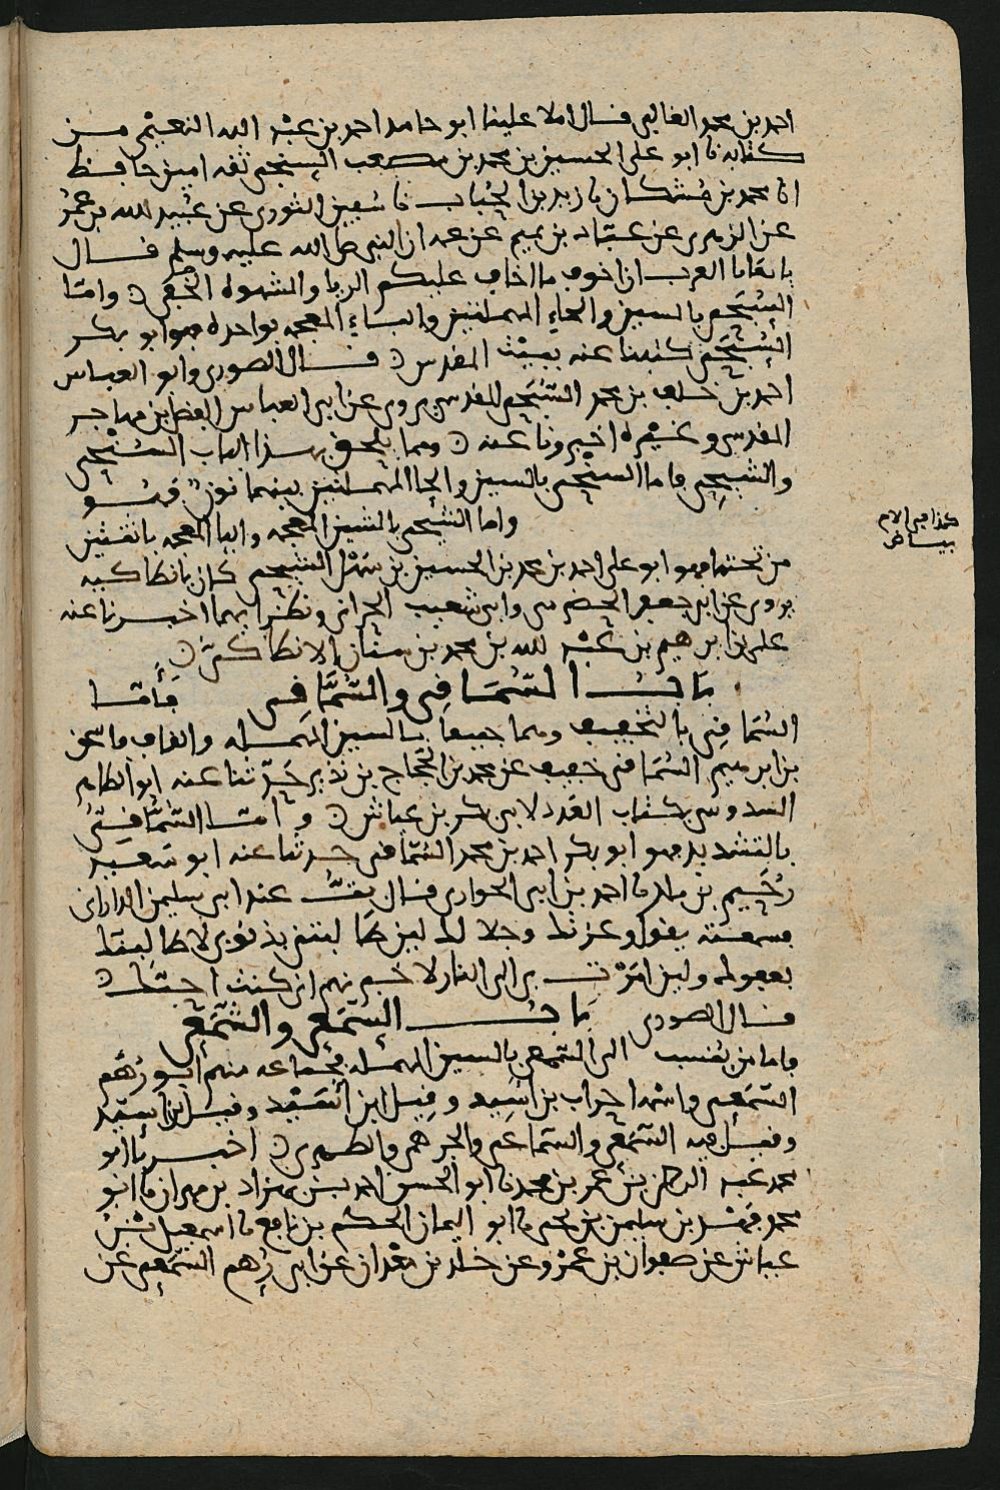 احمد بن محمد الغالبي قال املا علينا ابو حامد احمد بن عبد الله النعيمي من
كتابه نا ابو علي الحسين بن محمد بن مصعب السنجي ثقه امين حافظ
انا محمد بن مشكان نا زيد بن الحباب نا سفين الثوري عن عبيد الله بن عمر
عن الزهري عن عباد بن تميم عن عمه ان النبي صلى الله عليه وسلم قال
يا نعايا العرب ان اخوف ما اخاف عليكم الريا والشهوه الخفية واما
السبحي بالسين والحاء المهملتين والباء المعجمه بواحده فهو ابو بكر
السبحي كتبنا عنه ببيت المقدس قال الصوري وابو العباس
احمد بن خلف بن محمد السبحي المقدسي يروي عن ابي العباس الفضل بن مهاجر
المقدسي وغيره اخبرونا عنه ومما يلحق بهذا الباب السنحي
والشيحي فاما السنحي بالسين والحا المهملتين بينهما نون فهو
واما الشيحي بالشين المعجمه واليا المعجمه باثنتين
من تحتها فهو ابو علي احمد بن محمد بن الحسين بن سهل الشيحي كان بانطاكيه
يروي عن ابي جعفر الحضرمي وابي شعيب الحراني ونظرايهما اخبرنا عنه
علي بن ابرهيم بن عبد الله بن محمد بن سنان الانطاكي
باب السمافي والسمافي فأما
السمافي بالتخفيف وهما جميعا بالسين المهمله والقاف فاسحق
بن ابرهيم السمافي خفيف عن محمد بن الحجاج بن نذير حدثنا عنه ابو الطاهر
السدوسي بكتاب القدر لابي بكر بن عياش واما السمافي
بالتشديد فهو ابو بكر احمد بن محمد السمافي حدثنا عنه ابو سعيد
رحيم بن ملد نا احمد بن ابي الحواري قال بت عند ابي سليمن الداراني
فسمعته يقول وعزتك وجلالك لين طالبتني بذنوبي لاطالبنك
بعفوك ولين امرت بي الى النار لاخبرنهم اني كنت احبك
قال الصوري باب السمعي والشمعي
فاما من ينسب الى السمعي بالسين المهمله فجماعه منهم ابو رهم
السمعي واسمه احزاب بن اسيد وقيل ابن اسيد وقيل ابن اسيد
وقيل فيه السمعي والسماعي والجرهمي والظهري اخبرنا ابو
محمد عبد الرحمن بن عمر بن محمد نا ابو الحسن احمد بن بهزاد بن مهران نا ابو
محمد فهد بن سليمن بن يحيى نا ابو اليمان الحكم بن نافع نا اسمعيل بن
عياش عن صفوان بن عمرو عن خلد بن معدان عن ابي رهم السمعي عن
كذا في الام
بياض